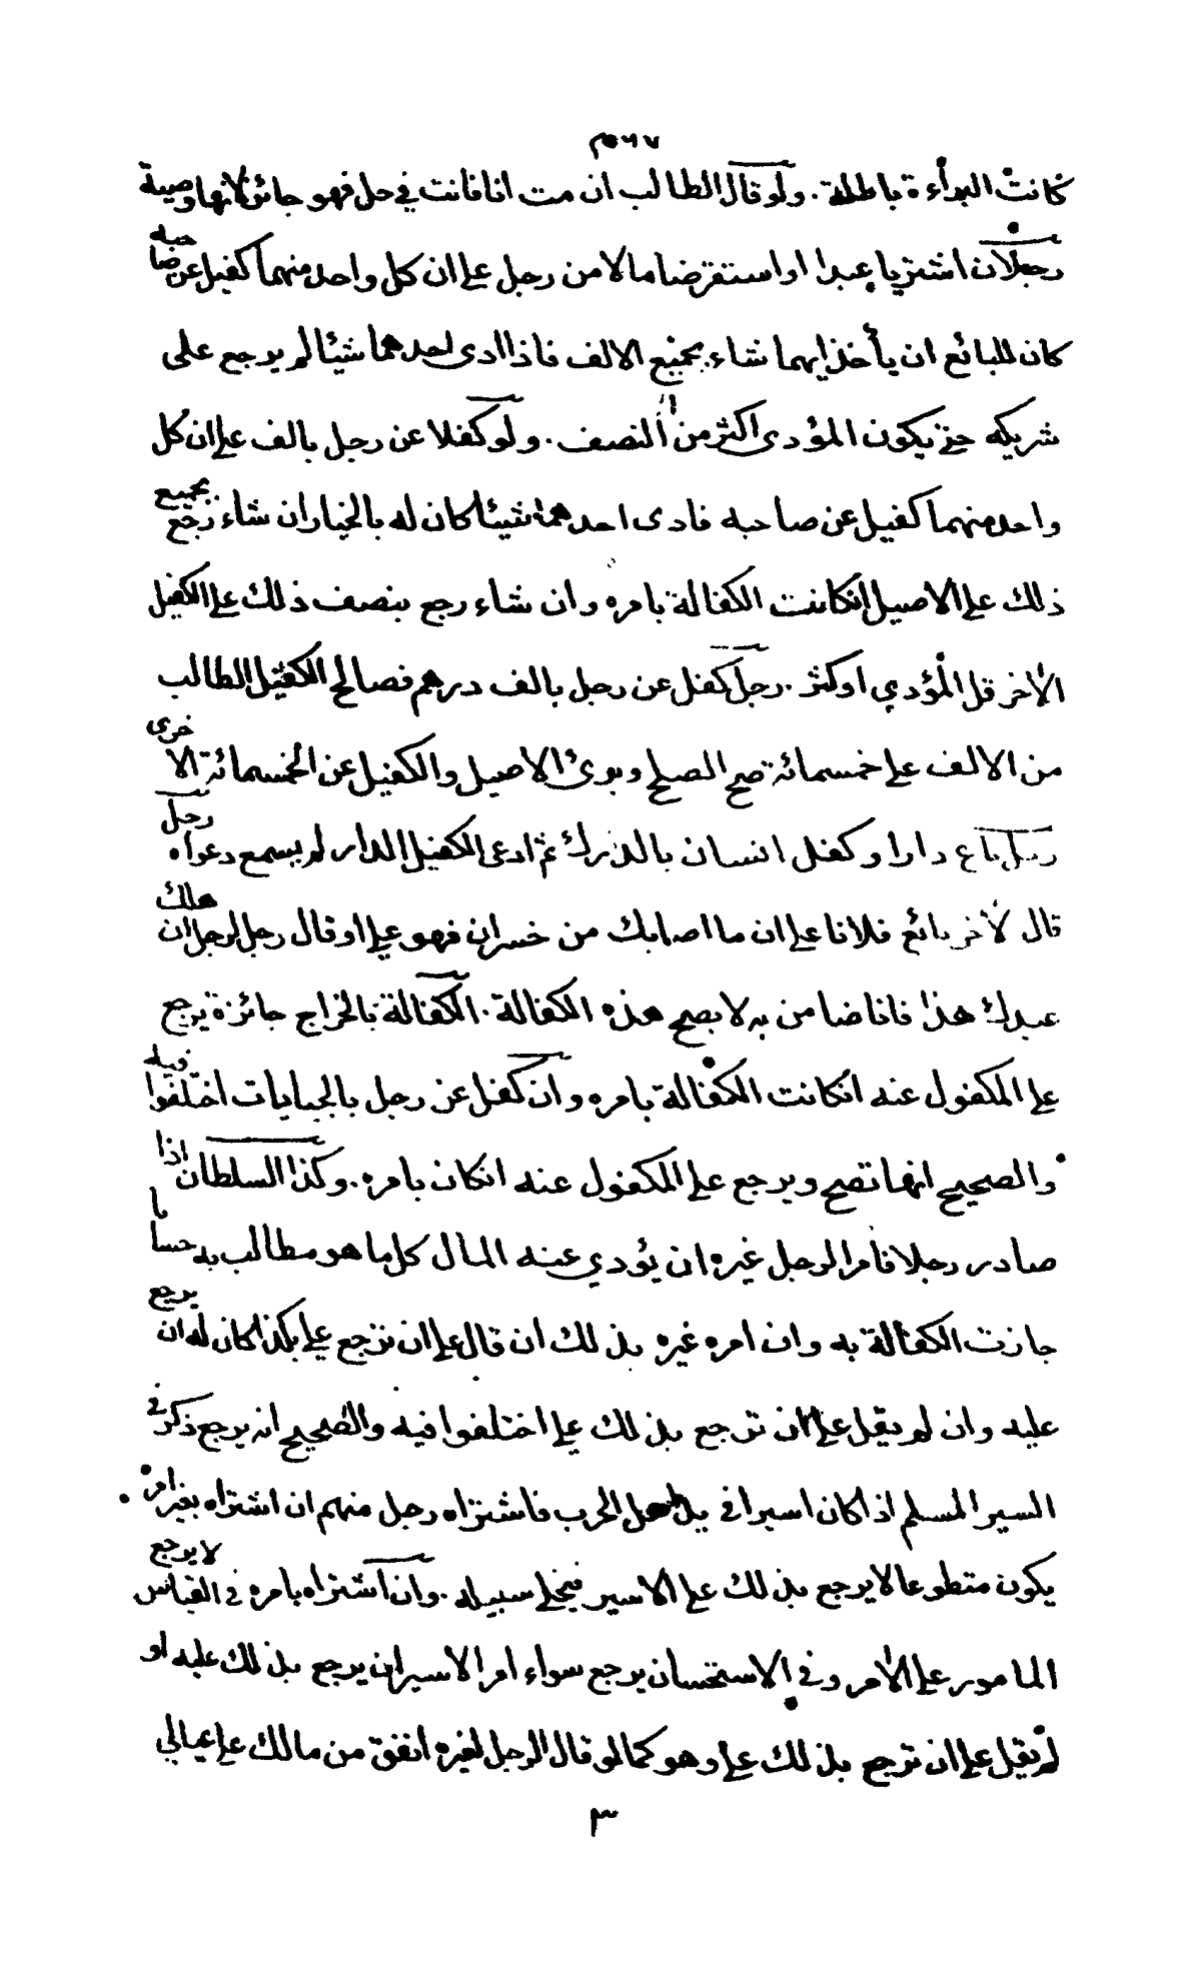 كانت البراءة باطلة. ولو قال الطالب ان مت انا فانت في حل فهو جائز لانها وصية
رجلان اشتريا عبدا او استقرضا مالا من رجل على ان كل واحد منهما كفيل عن صاحبه
كان للبائع ان يأخذ ايهما شاء بجميع الالف فاذا ادى احدهما شيئا لم يرجع على
شريكه حتى يكون المؤدى اكثر من النصف. ولو كفلا عن رجل بالف على ان كل
واحد منهما كفيل عن صاحبه فادى احدهما شيئا كان له بالخيار ان شاء رجع بجميع
ذلك على الاصيل انكانت الكفالة بامره وان شاء رجع بنصف ذلك على الكفيل
الآخر قل المؤدي او كثر. رجل كفل عن رجل بالف درهم فصالح الكفيل الطالب
من الالف على خمسمائة صح الصلح وبرئ الاصيل والكفيل عن الخمسمائة الاخرى
رجل باع دارا وكفل انسان بالدرك ثم ادعى الكفيل الدار لم يسمع دعواه رجل
قال لآخر بائع فلانا على ان ما اصابك من خسران فهو علي او قال رجل لرجل ان هلك
عبدك هذا فانا ضامن به لا يصح هذه الكفالة. الكفالة بالخراج جائزة يرجع
على المكفول عنه انكانت الكفالة بامره وان كفل عن رجل بالجبايات اختلفوا فيه
والصحيح انها تصح ويرجع على المكفول عنه انكان بامره. وكذا السلطان اذا
صادر رجلا فامر الرجل غيره ان يؤدي عنه المال كل ما هو مطالب به حسا
جازت الكفالة به وان امره غيره بذلك ان قال على ان ترجع علي بكذا كان له ان يرجع
عليه وان لم يقل على ان ترجع بذلك علي اختلفوا فيه والصحيح انه يرجع ذكر في
السير المسلم اذا كان اسيرا في يد اهل الحرب فاشتراه رجل منهم ان اشتراه بغير امره
يكون متطوعا لا يرجع بذلك على الاسير فيخلى سبيله. وان اشتراه بامره في القياس لا يرجع
المامور على الآمر وفي الاستحسان يرجع سواء امر الاسير ان يرجع بذلك عليه او
لم يقل على ان ترجع بذلك علي وهو كما لو قال الرجل لغيره انفق من مالك على عيالي
٣